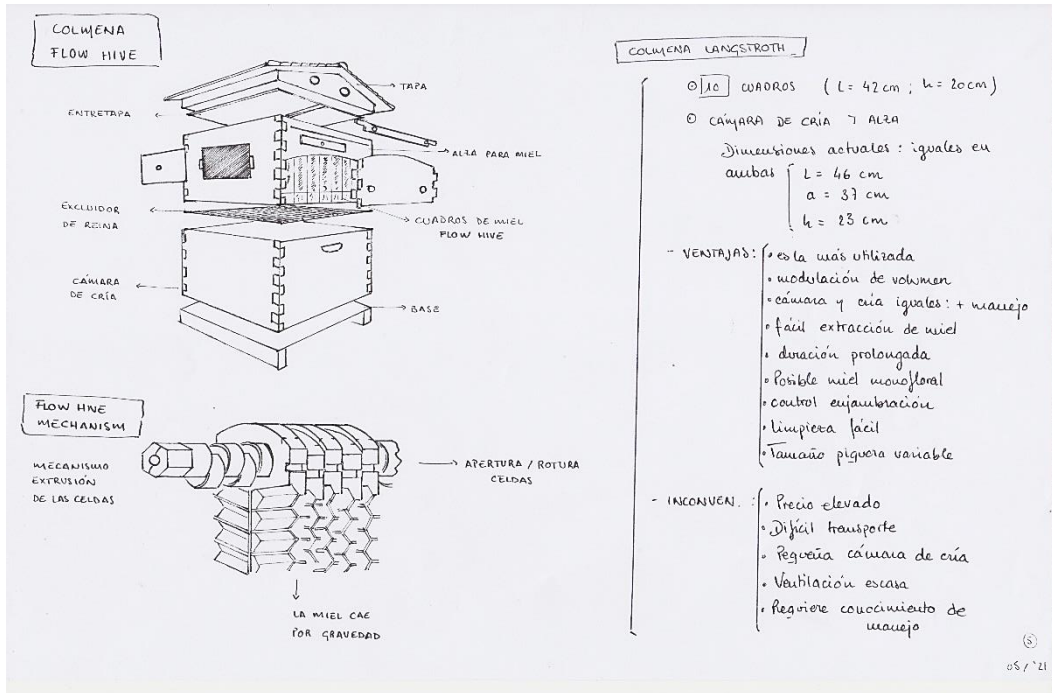 COLMENA
FLOW HIVE
TAPA
ENTRETAPA
ALZA PARA MIEL
EXCLUIDOR
DE REINA
CUADROS DE MIEL
FLOW HIVE
CÁMARA
DE CRÍA
BASE
FLOW HIVE
MECHANISM
MECANISMO
EXTRUSIÓN
DE LAS CELDAS
APERTURA / ROTURA
CELDAS
LA MIEL CAE
POR GRAVEDAD
COLMENA LANGSTROTH
10 CUADROS (L = 42 cm ; h = 20 cm)
CÁMARA DE CRÍA Y ALZA
Dimensiones actuales : iguales en
ambas L = 46 cm
a = 37 cm
h = 23 cm
- VENTAJAS : • es la más utilizada
• modulación de volumen
• cámara y cría iguales : + manejo
• fácil extracción de miel
• duración prolongada
• Posible miel monofloral
• control enjambración
• Limpieza fácil
• Tamaño piquera variable
- INCONVEN. : • Precio elevado
• Difícil transporte
• Pequeña cámara de cría
• Ventilación escasa
• Requiere conocimiento de
manejo
5
05 / '21